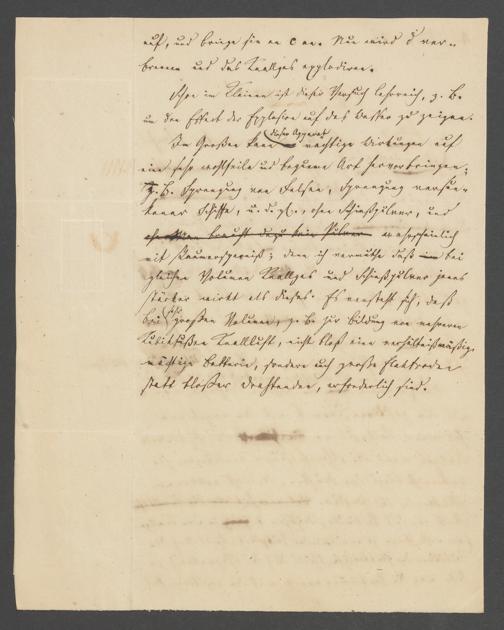 auf, und bringe sie an c an. Nun wird d ver-
brennen und das Knallgas explodiren.
Schon im Kleinen ist dieser Versuch lehrreich, z. B.
um den Effekt der Explosion auf das Wasser zu zeigen.
Im Großen kann dieser Apparat mächtige Wirkungen auf
eine sehr wohlfeile und bequeme Art hervorbringen;
z. B. Sprengung von Felsen, Sprengung versun-
kener Schiffe, u. d. gl., ohne Schießpulver, und
wahrscheinlich
mit Raumersparniß; denn ich vermuthe daß bei
gleichem Volumen Knallgas und Schießpulver jenes
stärker wirkt als dieses. Es versteht sich, daß
bei großen Volumen, z. B. zur Bildung von mehreren
Kubikfußen Knallluft, nicht bloß eine verhältnißmäßig
mächtige Batterie, sondern auch große Elektroden
statt bloßer Drahtenden, erforderlich sind.